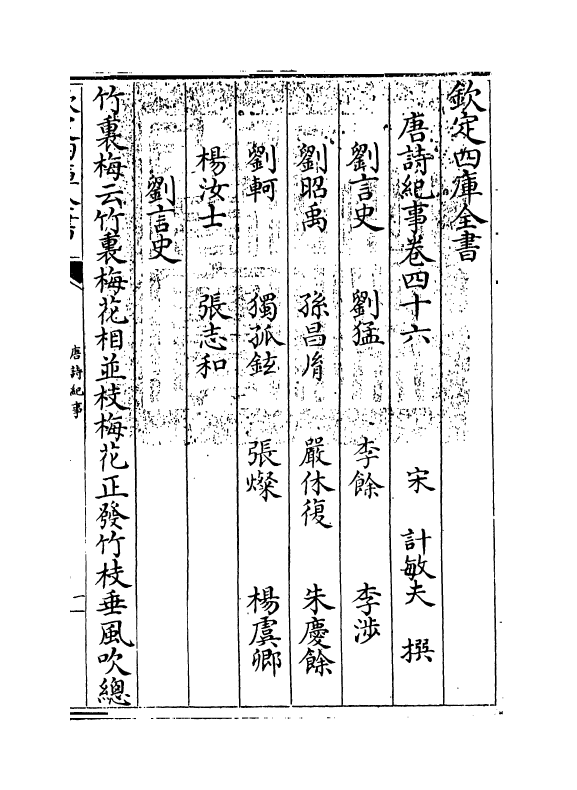 欽定四庫全書
唐詩紀事卷四十六　宋　計敏夫　撰
劉言史　劉猛　李餘　李渉
劉昭禹　孫昌胤　嚴休復　朱慶餘
劉軻　獨孤鉉　張燦　楊虞卿
楊汝士　張志和
劉言史
竹裏梅云竹裏梅花相並枝梅花正發竹枝垂風吹總
唐詩紀事
一